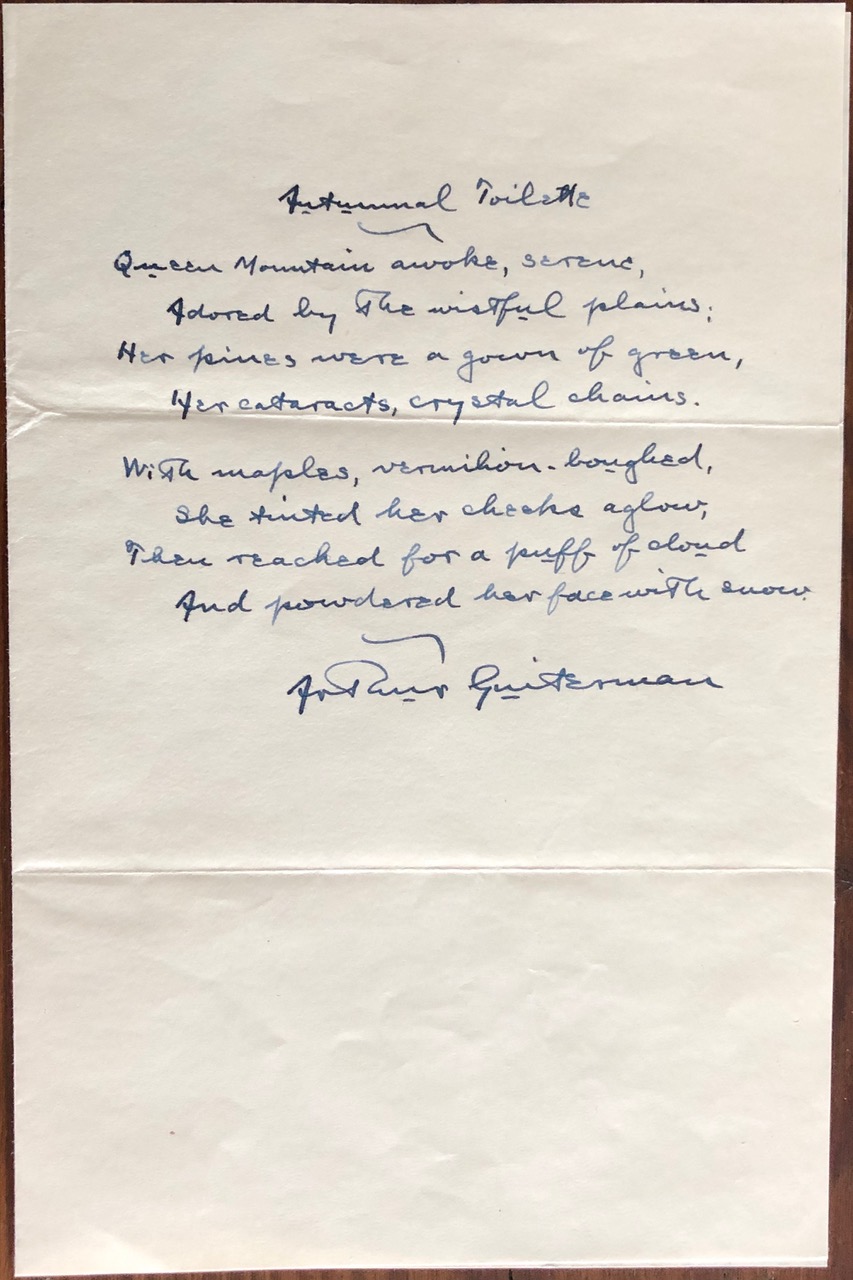 Autumnal Toilette
Queen Mountain awoke, serene,
Adored by the wistful plains;
Her pines were a gown of green,
Her cataracts, crystal chains.
With maples, vermilion-boughed,
She tinted her cheeks aglow,
Then reached for a puff of cloud
And powdered her face with snow.
Arthur Guiterman